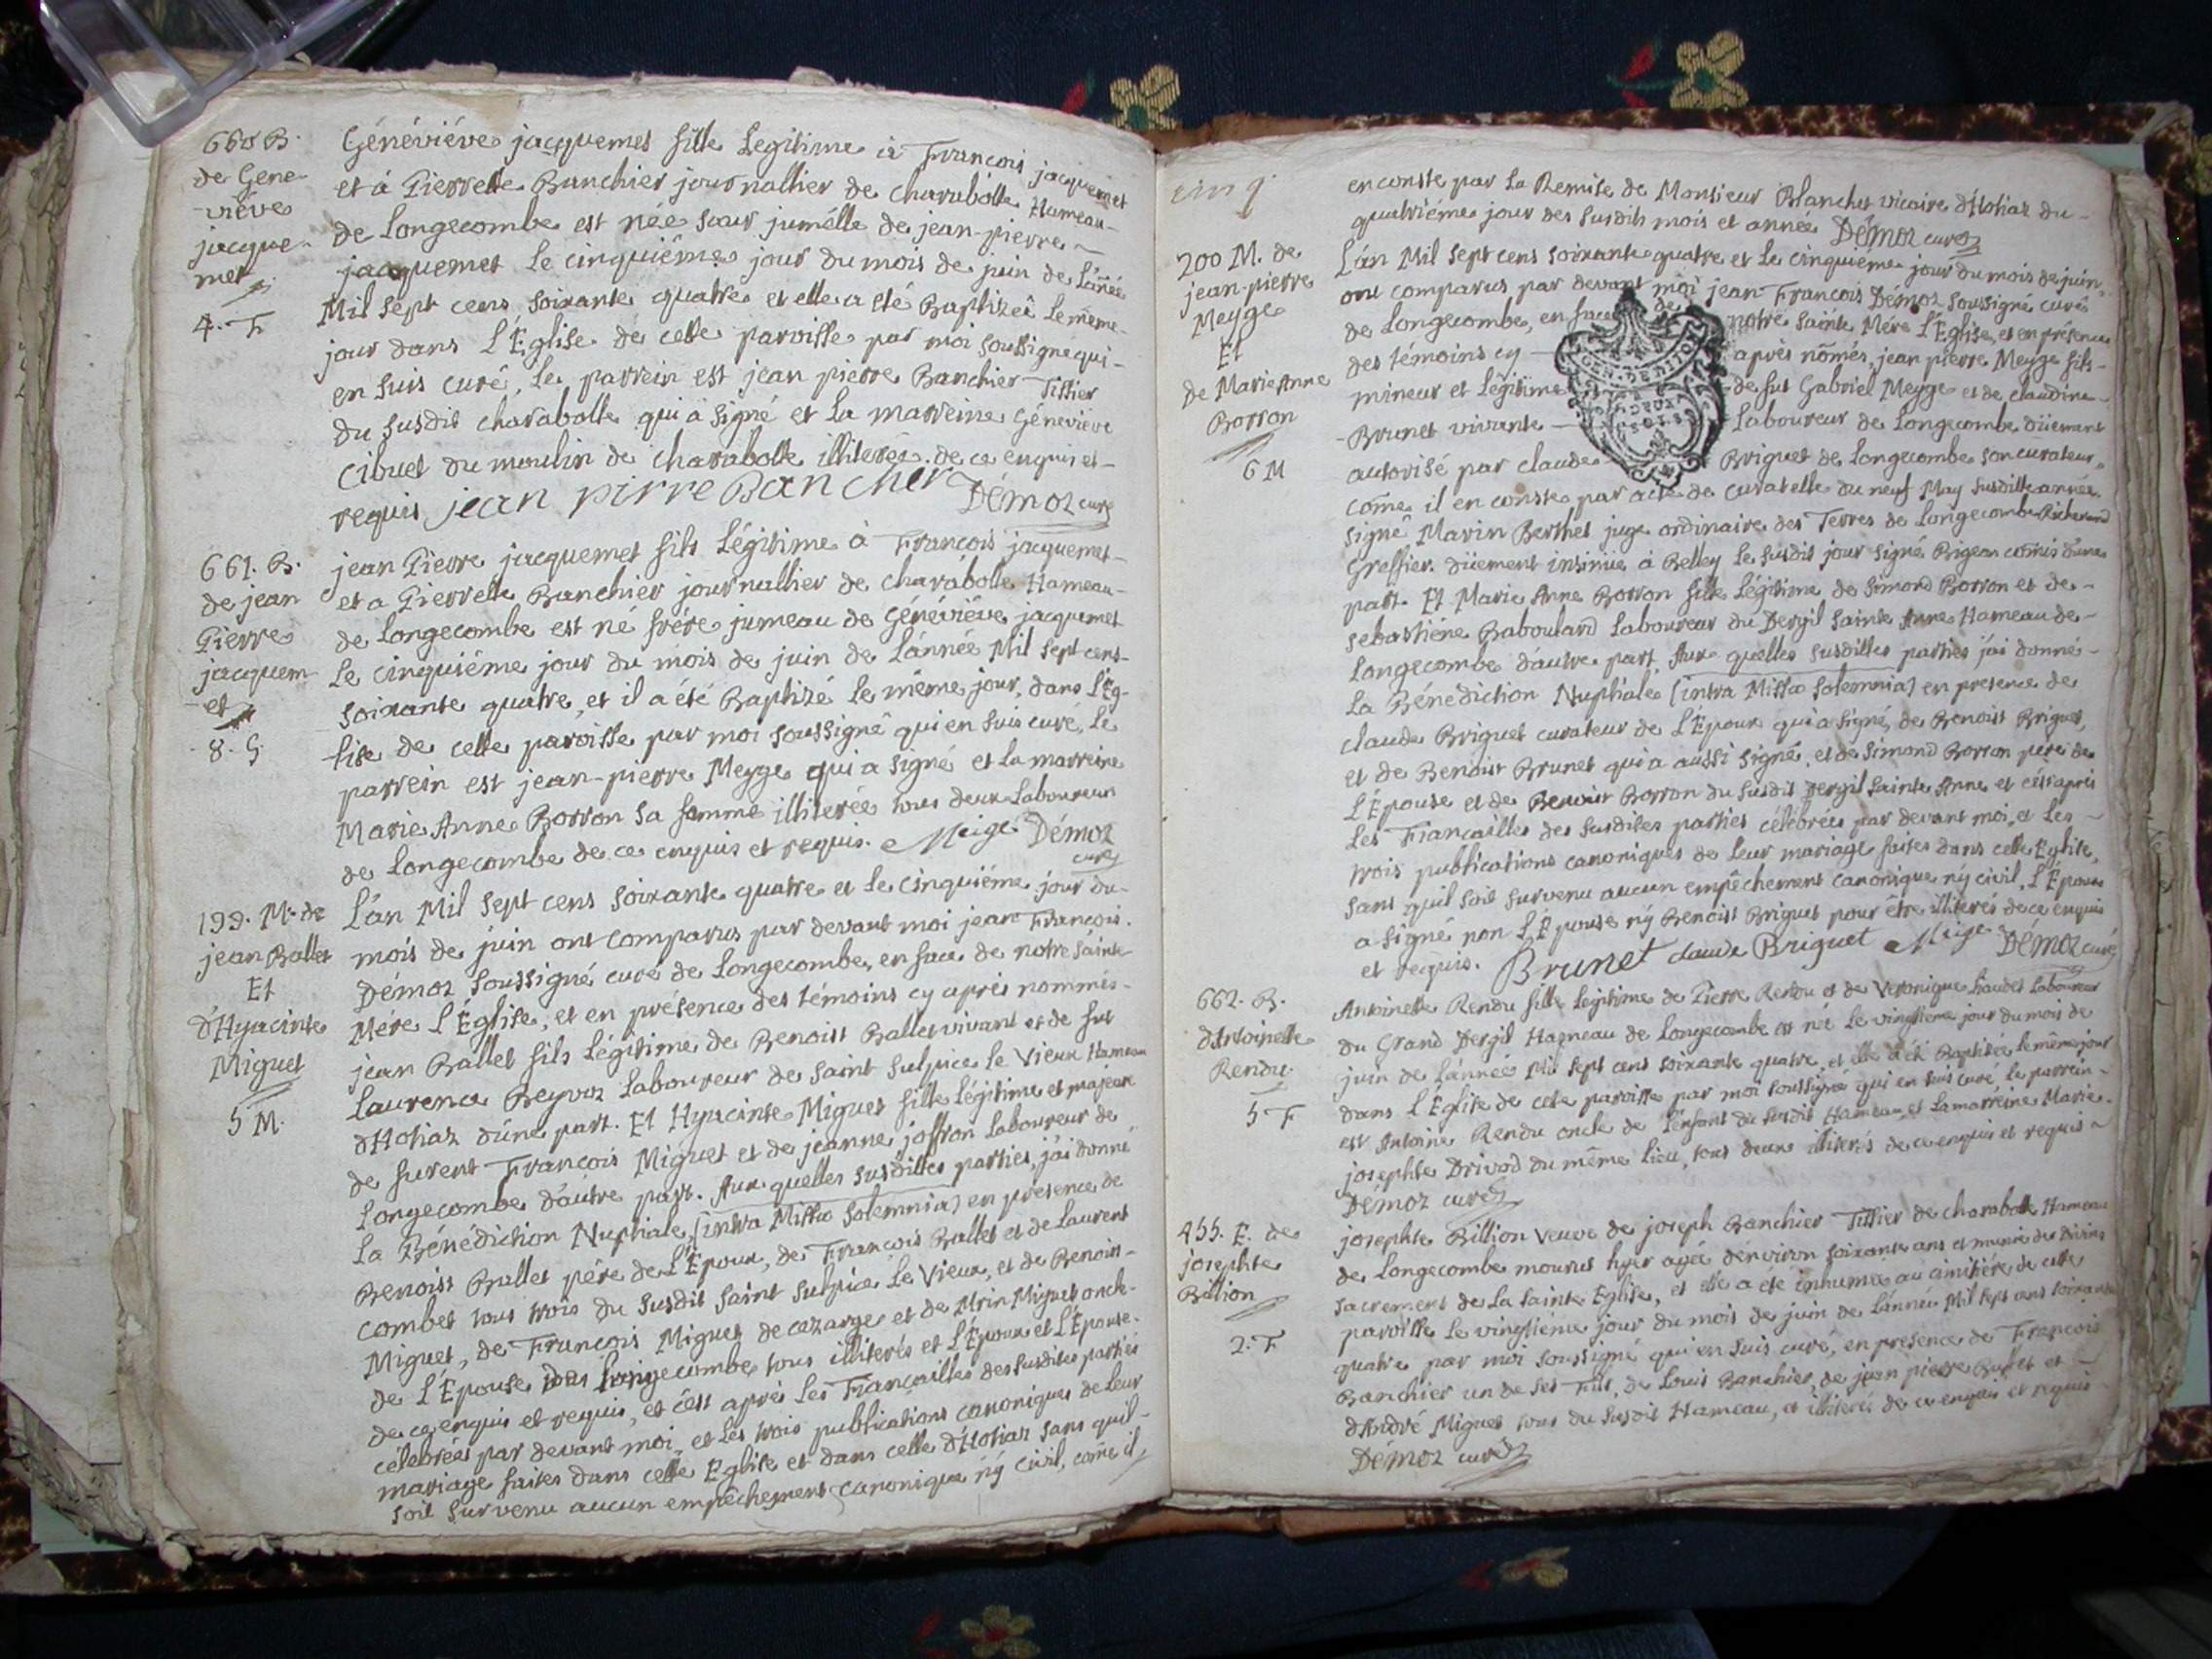 660 B.
de Gene-
-viéve
jacque-
met
4. F
Généviéve jacquemet fille Legitime à François jacquemet
et à Pierrette Banchier journallier de charabotte Hameau-
de Longecombe est née sœur jumélle de jean-pierre
jacquemet Le cinquiéme jour du mois de juin de L'ánée
Mil sept cens soixante quatre et elle a eté Baptizeé Le même-
jour dans L'Eglise de cette paroisse par moi soussigné qui-
en suis curé, Le parrein est jean pierre Banchier Tissier
du susdit charabotte qui à signé et La marreine Généviéve
Cibuet du moulin de charabotte illiterée de ce enquis et-
requis jean pirre Bancher Démoz curé
661. B.
de jean
Pierre
jacquem
-et
8. G
jean Pierre jacquemet fils Légitime à François jacquemet-
et a Pierrette Banchier journallier de charabotte Hameau-
de Longecombe est né frére jumeau de Généviéve jacquemet
Le cinquiéme jour du mois de juin de L'année Mil sept cens-
soixante quatre, et il a été Baptizé Le même jour, dans L'Eg-
lise de cette paroisse par moi soussigné qui en suis curé, Le
parrein est jean-pierre Meyge qui a signé et La marreine
Marie Anne Borron sa femme illiterée tous deux Laboureur
de Longecombe de ce enquis et requis. Meige Démoz
curé
199. M. de
jean Ballet
Et
d'Hyacinte
Miguet
5 M.
L'án Mil sept cens soixante quatre et Le cinquiéme jour du-
mois de juin ont comparus par devant moi jean François.
Démoz soussigné curé de Longecombe, en face de notre sainte
Mére L'Église, et en présence des témoins cy aprés nommés-
jean Ballet fils Légitime de Benoist Ballet vivant et de fut
Laurence Beyvoz Laboureur de saint sulpice Le Vieux Hameau
d'Hotiaz d'une part. Et Hyacinte Miguet fille Légitime et majeure
de furent François Miguet et de jeanne joffron Laboureur de
Longecombe d'autre part. Aux quelles susdittes parties, j'ai donné
La Bénédiction Nuptiale, (intra Missæ solemnia) en presence de
Benoist Ballet pére de L'Époux, de François Ballet et de Laurent
combet tous trois du susdit saint sulpice Le Vieux, et de Benoist-
Miguet, de François Miguet de cazarge et de Miguet oncle-
de L'Épouse tous Longecombe tous illiterés et L'Époux et L'Épouse.
de ce enquis et requis, et c'est aprés Les Fiançailles des susdites parties
célebrées par devant moi, et Les trois publications canoniques de Leur
mariage faites dans cette Eglise et dans celle d'Hotiaz sans quil-
soit survenu aucun empêchement canonique ny civil, come il
cinq
en conste par La Remise de Monsieur Blanchet vicaire d'Hotiaz du-
quatriéme jour des susdits mois et année Démoz curé
200 M. de
jean-pierre
Meyge
Et
de Marie Anne
Borron
6 M
L'án Mil sept cens soixante quatre et Le cinquiéme jour du mois de juin-
ont comparus par devant moi jean-François Démoz soussigné curé
de Longecombe, en face de notre sainte Mére L'Eglise, et en présence
des témoins cy aprés nômés, jean pierre Meyge fils-
mineur et Légitime de fut Gabriel Meyge et de claudine-
Brunet vivante Laboureur de Longecombe düement
autorisé par claude Briguet de Longecombe son curateur,
come il en conste par acte de curatelle du neuf May susditte année
signé Marin Berthet juge ordinaire des Terres de Longecombe Richerand
Greffier. düement insinué à Belley Le susdit jour signé Brigean comis d'une
part. Et Marie Anne Borron fille Légitime de simond Borron et de-
sebastiéne Baboulard Laboureur du Dergil sainte Anne Hameau de-
Longecombe d'autre part. Aux quelles susdittes parties j'ai donné-
La Bénédiction Nuptiale (intra Missæ solemnia) en presence de
claude Briguet curateur de L'Époux qui a signé, de Benoist Briguet,
et de Benoist Brunet qui a aussi signé, et de simond Borron pere de
L'Épouse et de Benoist Borron du susdit Dergil sainte Anne et c'est aprés
Les Fiancailles des susdites parties célebrées par devant moi, et Les
trois publications canoniques de Leur mariage faites dans cette Eglise,
sans quil soit survenu aucun empêchement canonique ny civil, L'Époux
a signé non L'Épouse ny Benoist Briguet pour être illiterés de ce enquis
et requis. Brunet claude Briguet Meige Démoz curé
662. B.
d'Antoinette
Rendu.
5 F
Antoinette Rendu fille Legitime de Pierre Rendu et de Veronique Laboureur
du Grand Dergil Hameau de Longecombe est née Le vingtieme jour du mois de
juin de L'année Mil sept cens soixante quatre, et elle a été Baptizée Le même jour
dans L'Église de cette paroisse par moi soussigné qui en suis curé, Le parrein-
est Antoine Rendu oncle de L'enfant du susdit Hameau, et La marreine Marie-
josephte Drivod du même Lieu, tous deux illiterés de ce enquis et requis
Démoz curé
455. E. de
josephte
Billion
2. F
josephte Billion Veuve de joseph Banchier Tissier de charabotte Hameau
de Longecombe mourut hyer agée d'environ soixante ans et munie des Divins
sacremens de La sainte Eglise, et elle a été inhumée au cimitiére de cette
paroisse Le vingtiéme jour du mois de juin de L'année Mil sept cens soixante
quatre par moi soussigné qui en suis curé, en presence de François
Banchier un de ses Fils, de Louis Banchier, de jean pierre Ballet et
d'André Miguet tous du susdit Hameau, et illiterés de ce enquis et requis
Démoz curé